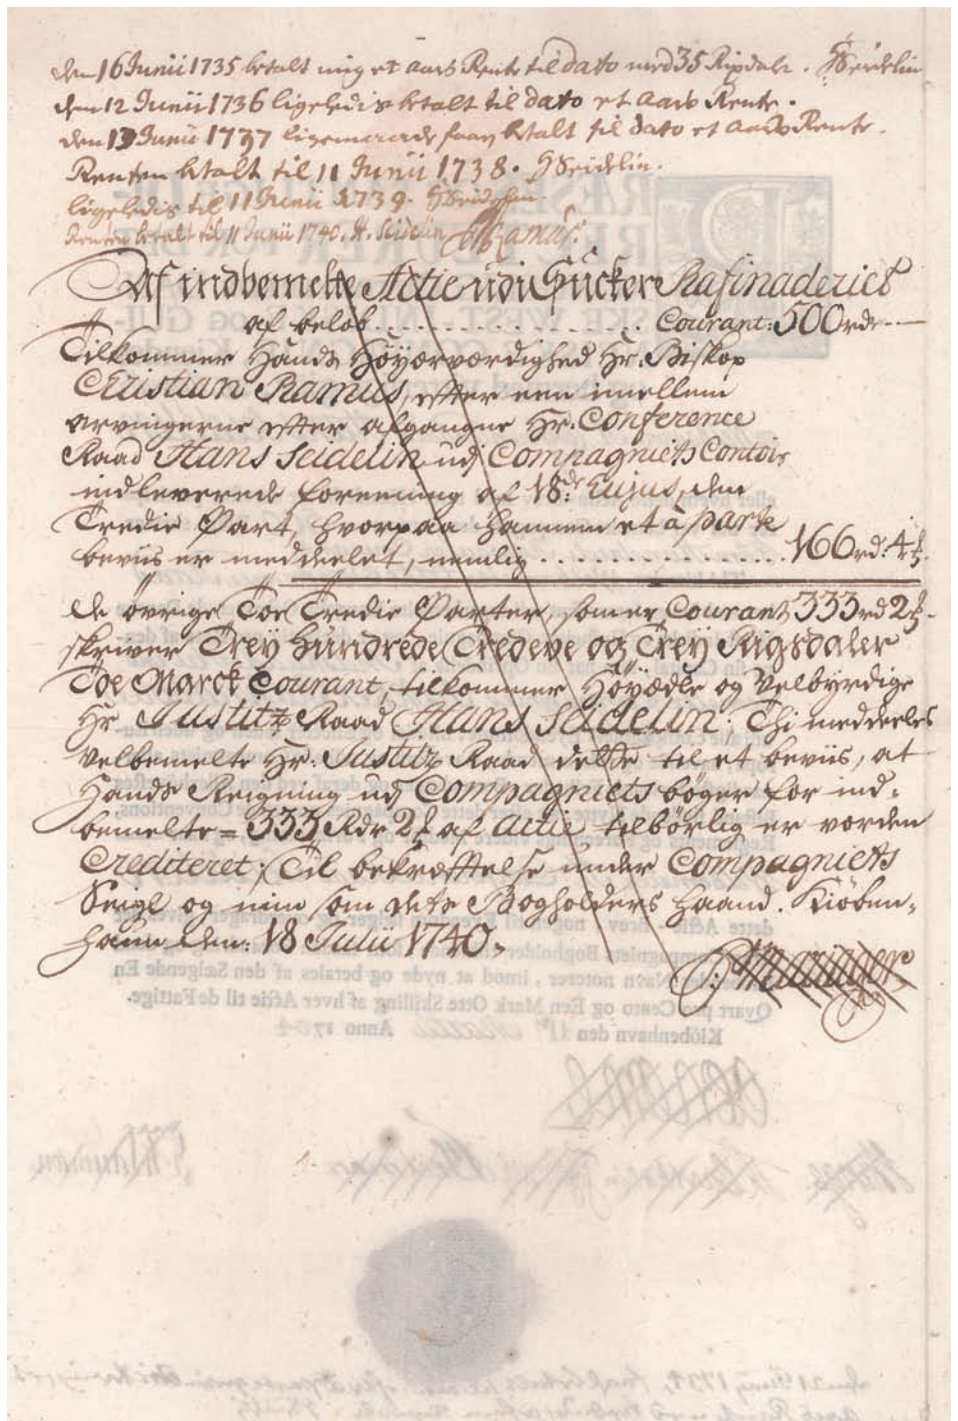 den 16 Junii 1735 betalt mig et aars Rente til dato med 35 Rixdaler. HSeidelin
den 12 Junii 1736 ligeledis betalt til dato et aars Rente.
den 13 Junii 1737 ligemaade betalt til dato et aars Rente.
Renten betalt til 11 Junii 1738. HSeidelin.
ligeledis til 11 Junii 1739. HSeidelin.
Renten betalt til 11 Junii 1740. H. Seidelin Ramus.
Af indbemelte Actie udi Sucker Rafinaderiet
af beløb . . . . . . . . . . . . . . . . Courant: 500 rdr
Tilkommer Hands Höÿærværdighed Hr: Biskop
Christian Ramus, efter een imellem
arvingerne efter afgangne Hr: Conference
Raad Hans Seidelin udj Compagniets Contoir
indleverede foreening af 18de hujus, den
Tredie Part, hvorpaa hannem et à parte
beviis er meddeelet, nemlig . . . . . . . . . . . . . . 166 rd: 4 ꝑ.
de övrige Toe Tredie Parter, som er Courant 333 rd 2 ꝑ
skriver Treÿ Hundrede Tredeve og Treÿ Rigsdaler
Toe Marck Courant, tilkommer Höÿædle og Velbyrdige
Hr Justitz Raad Hans Seidelin; Thi meddeeles
Velbemelte Hr: Justitz Raad dette til et beviis, at
Hands Reigning udj Compagniets bøger for ind-
bemelte = 333 Rdr 2 ꝑ af Actie tilbörlig er vorden
Crediteret; Til bekræftelse under Compagniets
Seigl og min som dets Bogholders haand. Kiöben-
hafn den: 18 Julii 1740.